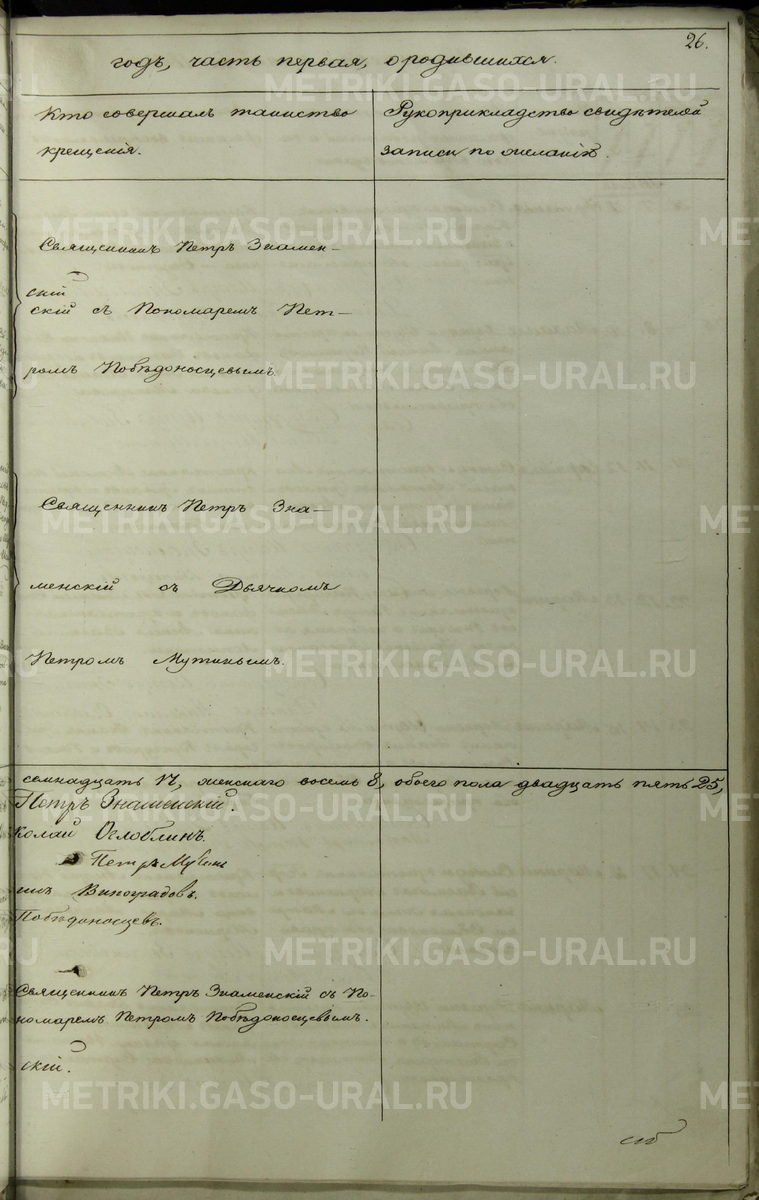 26.
годъ, часть первая, о родившихся.
Кто совершалъ таинство
крещенiя.
Рукоприкладство свидѣтелей
записи по желанiю.
Священникъ Петръ Знамен-
скiй
скiй съ Пономаремъ Пет-
ромъ Побѣдоносцевымъ.
Священникъ Петръ Зна-
менскiй съ Дьячкомъ
Петромъ Мутинымъ.
семнадцать 17, женскаго восемь 8, обоего пола двадцать пять 25,
Петръ Знаменскiй.
колай Оглоблинъ.
Петръ Мутинъ
Виноградовъ.
Побѣдоносцевъ.
Священникъ Петръ Знаменскiй съ По-
номаремъ Петромъ Побѣдоносцевымъ.
скiй.
METRIKI.GASO-URAL.RU